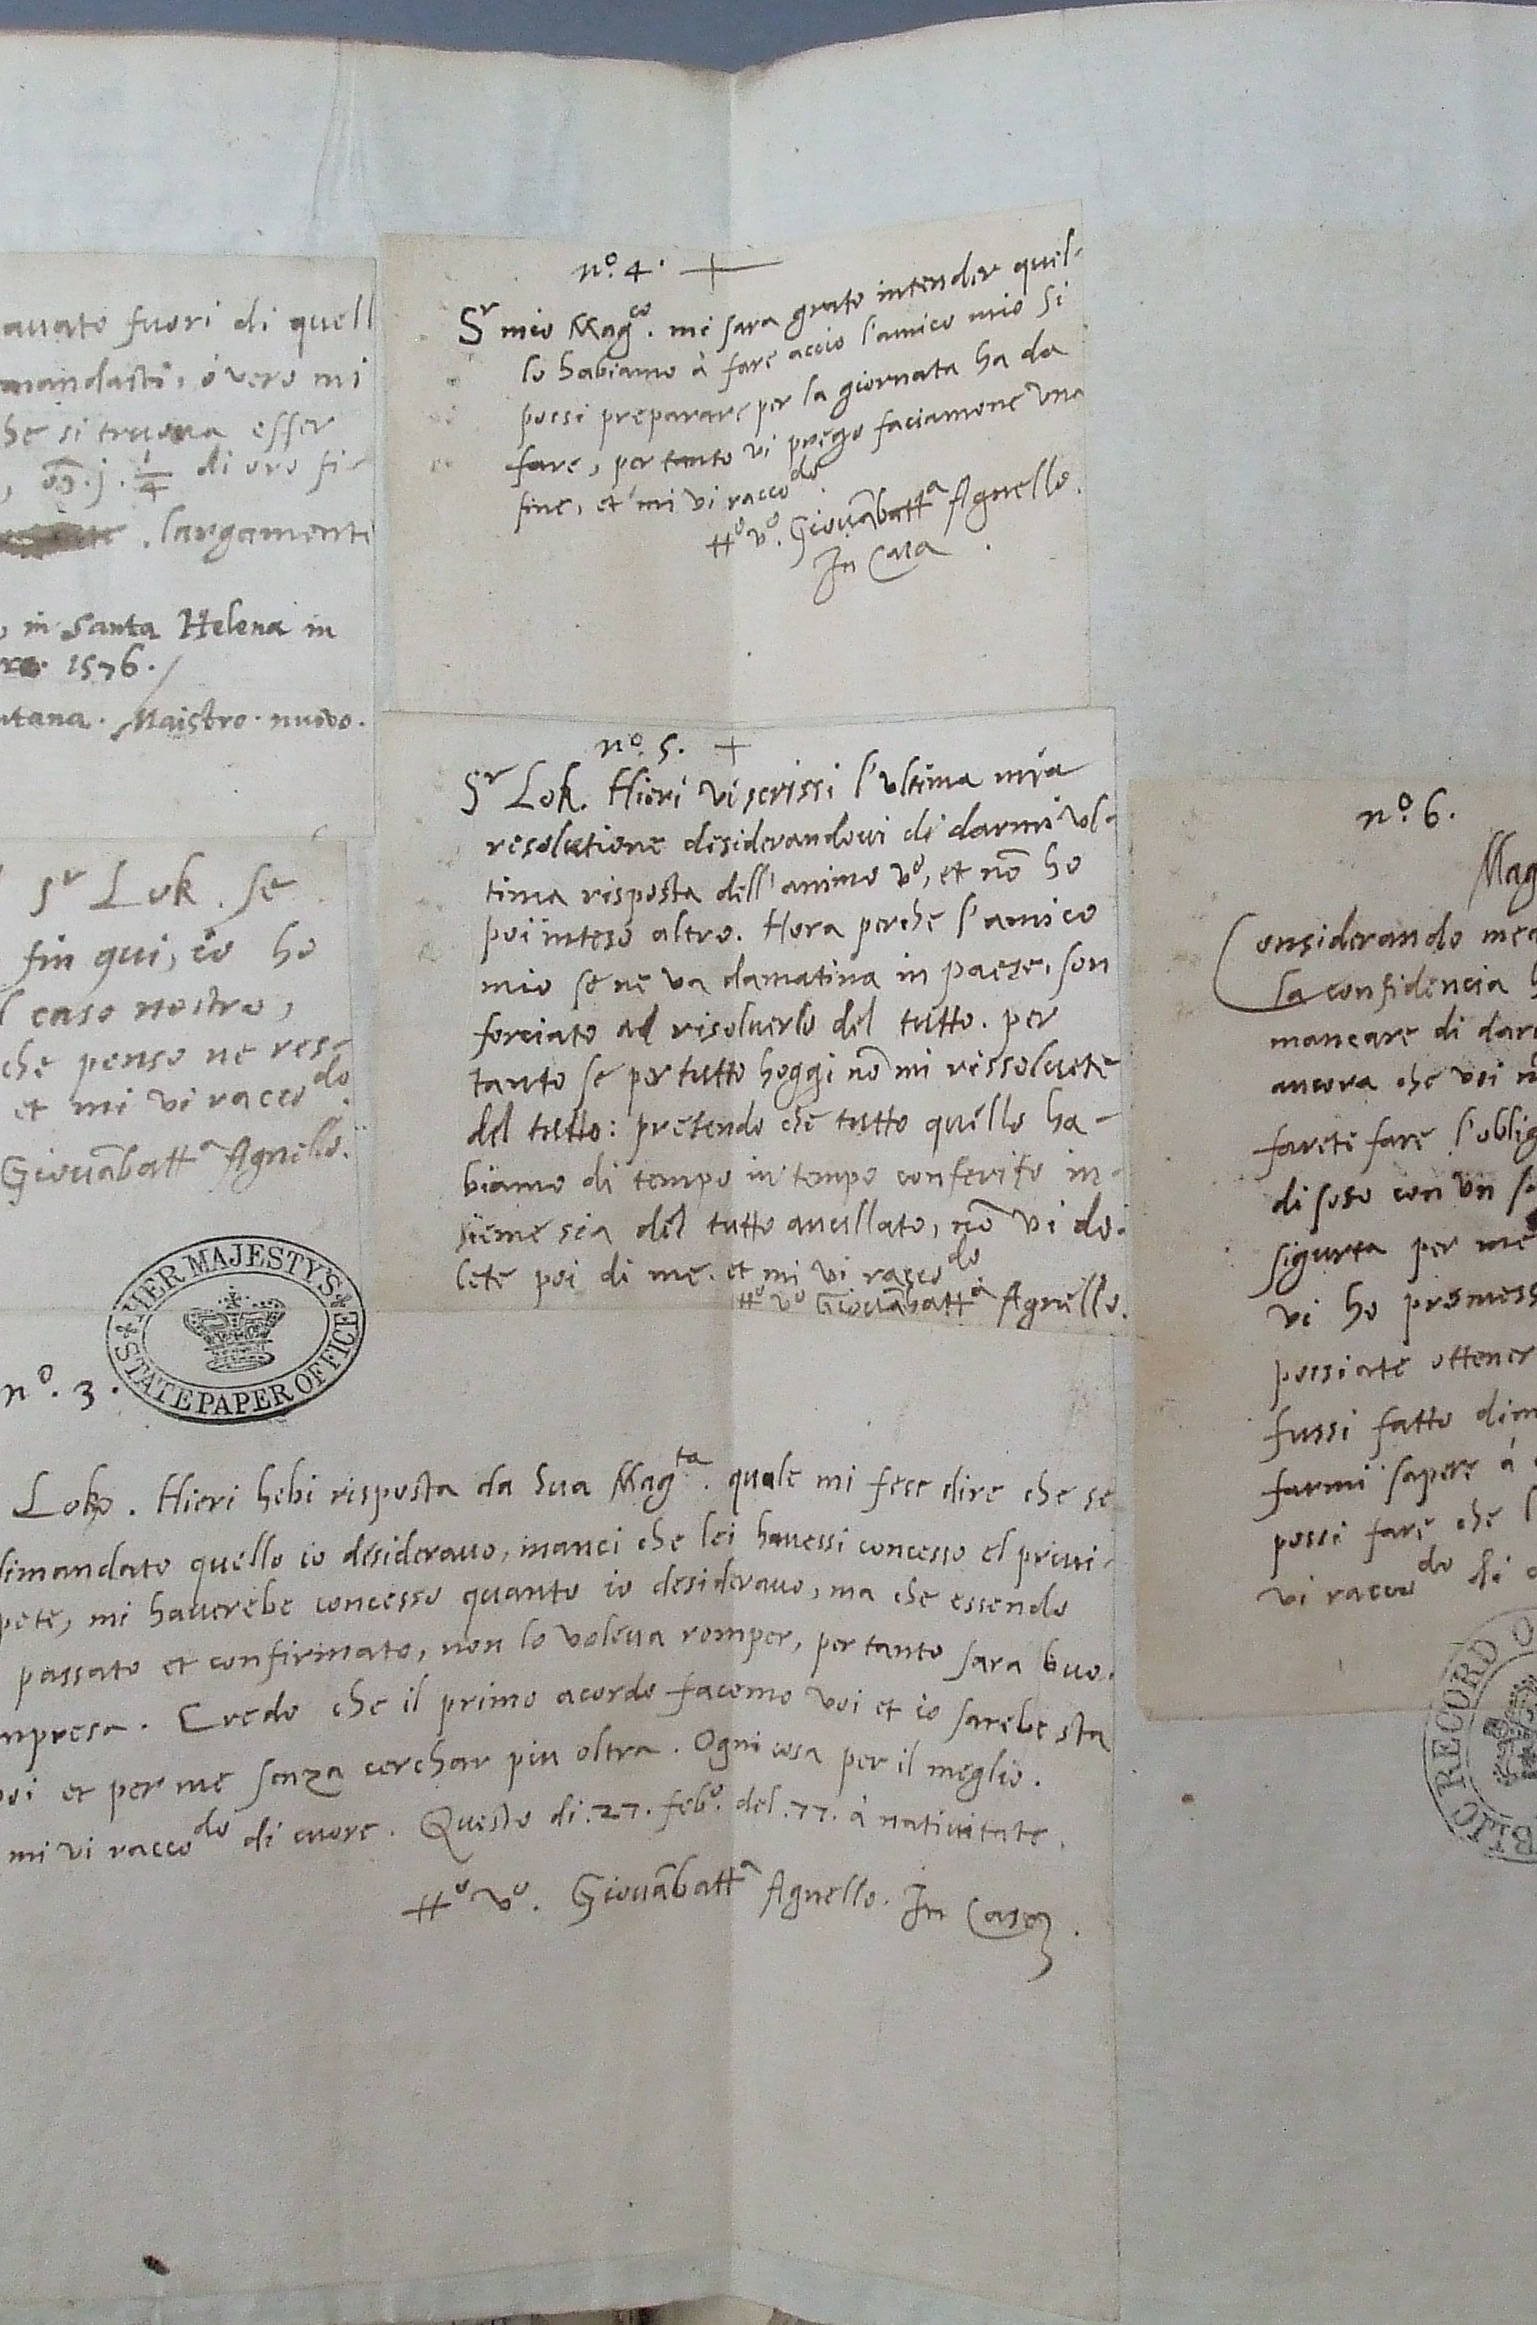 auato fuori di quell
mandasti, o vero mi
he si truova esser
di oro fi-
largamenti
, in Santa Helena in
re. 1576.
ntana. Maistro. nuovo.
Sr Lok. se
fin qui, io ho
l caso nostro,
che penso ne res-
et mi vi raccodo.
Giouābatta Agnello.
no. 4.
Sr mio Magco. mi sara grato intender quel-
lo habiamo à fare accio l'amico mio si
possi preparare per la giornata ha da
fare, per tanto vi prego faciamone una
fine, et mi vi raccodo.
vo. Giouābatta Agnello.
In Casa
no. 5. +
Sr Lok. Hieri vi scrissi l'ultima mia
resolutione desiderandovi di darmi vol-
tima risposta dell'animo vo, et nō ho
poi inteso altro. Hora perche l'amico
mio se ne va damatina in paese, son
forciato ad risolverlo del tutto. per
tanto se per tutto hoggi nō mi rissoluete
del tutto: pretendo che tutto quello ha-
biamo di tempo in tempo conferito in-
sieme sia del tutto anullato, nō vi do-
lete poi di me. et mi vi raccodo
vo Giouābatta Agnello.
HER MAJESTY'S
STATE PAPER OFFICE
no. 3.
Loko. Hieri hebi risposta da Sua Magta. quale mi fece dire che se
dimandato quello io desiderauo, inanci che lei hauessi concesso el priui-
pete, mi hauerebe concesso quanto io desiderauo, ma che essendo
passato et confirmato, non lo voleua romper, per tanto sara buo-
mpresa. Credo che il primo acordo facemo voi et io sarebe sta
voi et per me senza cerchar piu oltra. Ogni cosa per il meglio.
mi vi raccodo di cuore. Questo di .27. febo. del .77. à natiuitate.
vo. Giouābatta Agnello. In Casa.
no. 6.
Mag
Considerando me
la confidencia h
mancare di dar
ancora che voi
farete fare l'oblig
di soso con un s
sigurta per me
vi ho promess
possiate ottener
fussi fatto dim
farmi sapere à
possi fare che l
vi raccodo di
BLIC RECORD O